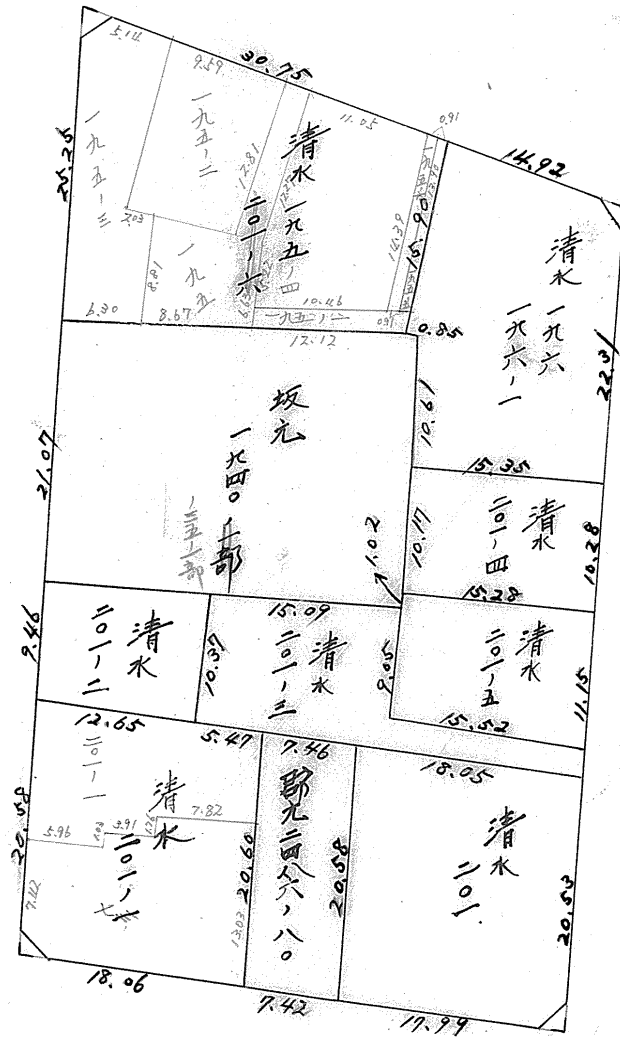 5.14
9.59
30.75
11.05
0.91
14.92
25.25
一九五ノ三
一九五ノ二
12.81
清水 一九五ノ四
二〇一ノ六
14.39
15.90
清水
一九六
一九六ノ一
22.31
7.03
8.81
一九五
6.30
8.67
10.46
0.91
0.85
12.12
坂元
一九四〇ノ一部
10.61
15.35
21.07
1.02
10.17
清水
二〇一ノ四
10.28
15.28
9.46
清水
二〇一ノ二
10.37
15.09
清水
二〇一ノ三
9.05
清水
二〇一ノ五
11.15
15.52
12.65
5.47
7.46
18.05
二〇一ノ一
清水
二〇一ノ七
5.96
3.91
7.82
20.58
7.42
13.03
20.60
郡元二四八六ノ八〇
20.58
清水
二〇一
20.53
18.06
7.42
17.99